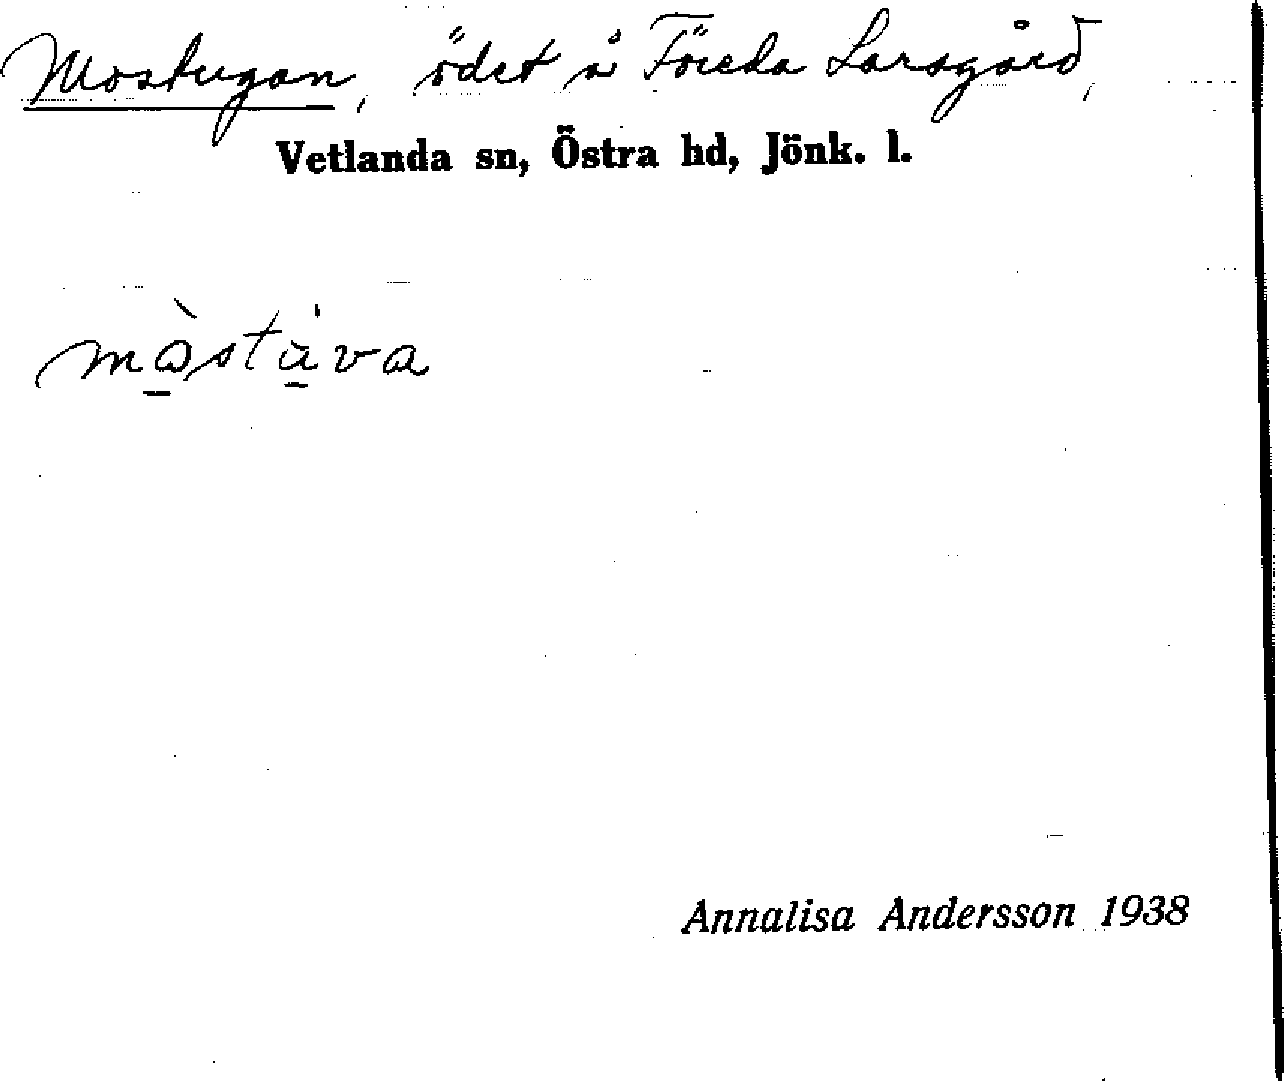 Mostugan, ödet å Föreda Larsgård,
Vetlanda sn, Östra hd, Jönk. l.
Annalisa Andersson 1938